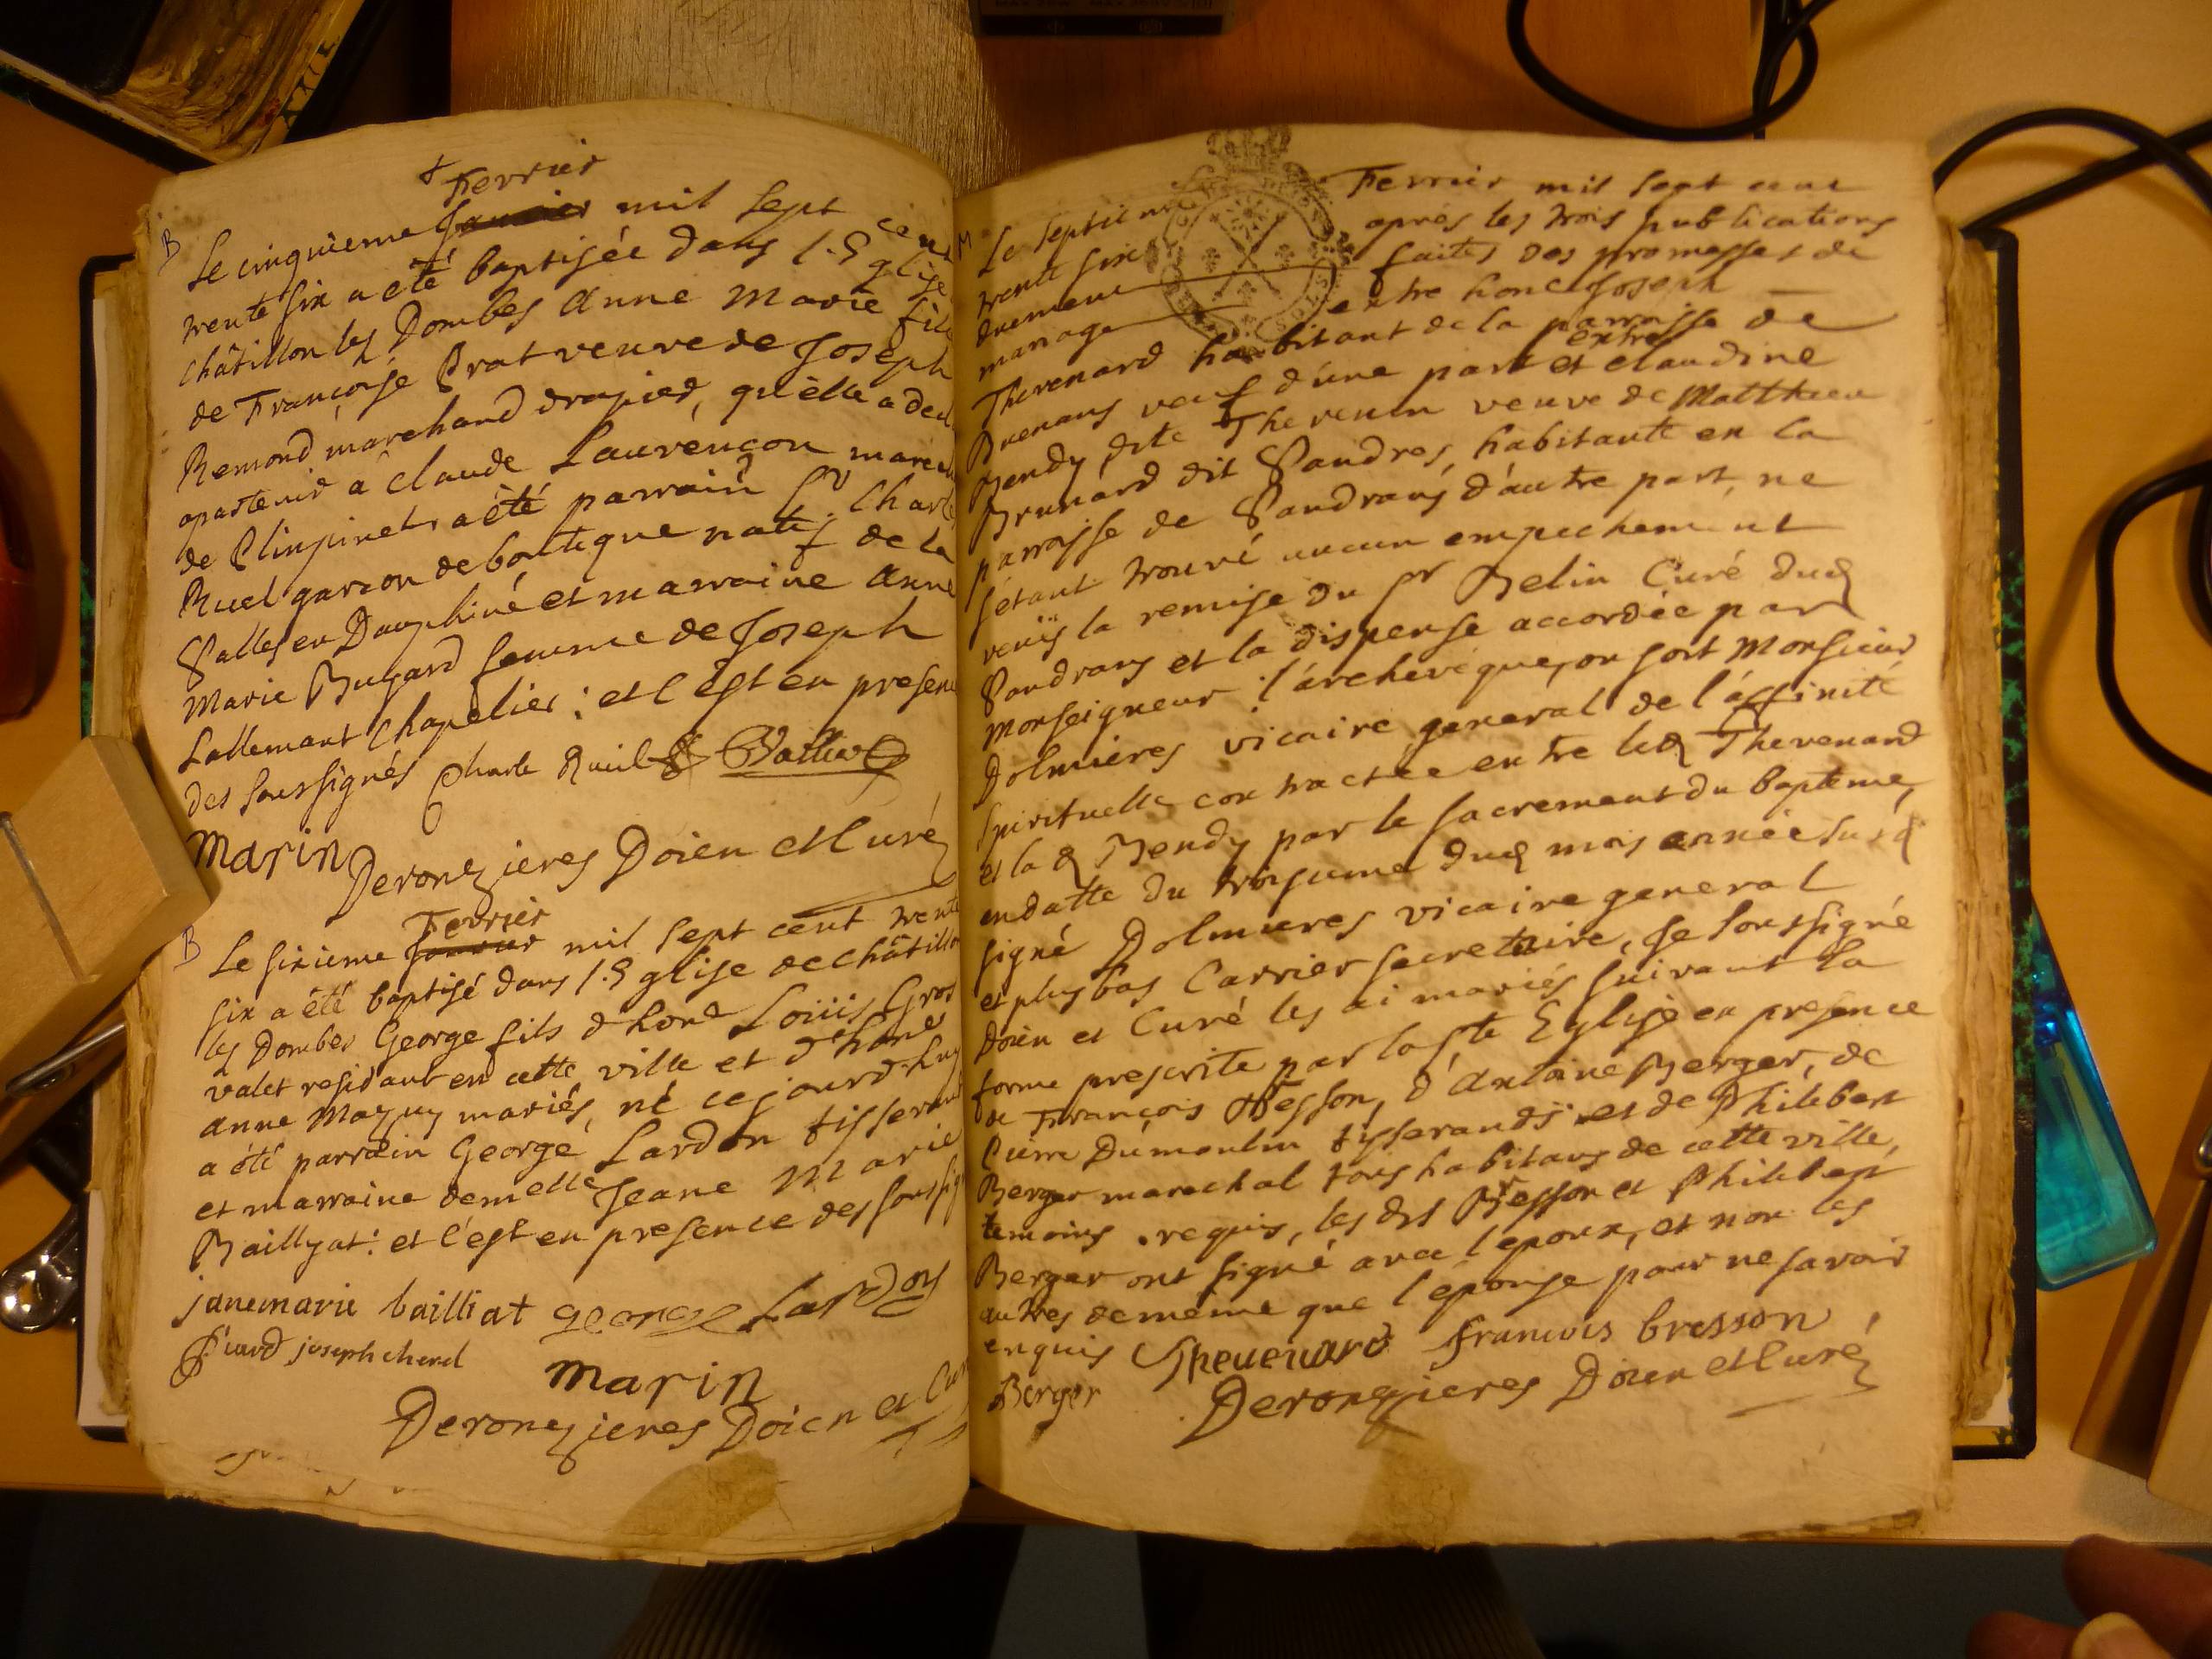 + Fevrier
B Le cinquieme Janvier mil sept cent
trente six a été baptisée dans l'Eglise
châtillon les Dombes Anne Marie fille
de Françoise Prat veuve de Joseph
Remond marchand drapier, qu'elle a decl
apartenir à Claude Laurençon march
de Plinpinet, a été parrain Sr Charle
Ruel garçon de boutique natif de la
Salles en Dauphiné et marraine Anne
Marie Bugard femme de Joseph
Lallemant chapelier : et c'est en presen
des soussignés Charle Ruiel
Marin
Deronzieres Doien et Curé
Fevrier
B Le sixieme Janvier mil sept cent trente
six a été baptisé dans l'Eglise de châtillo
les Dombes George fils d'hone Loüis Gros
valet residant en cette ville et d'hone
Anne Maguy mariés, né cejourd'huy
a été parrain George Lardon tisserand
et marraine demelle Jeane Marie
Baillyat : et c'est en presence des soussig
janemarie bailliat george Lardon
joseph cherel
Marin
Deronzieres Doien et Cu
M Le septieme Fevrier mil sept cent
trente six après les trois publications
duement faites des promesses de
mariage entre hone Joseph
Thevenard habitant de la parroisse de
Buenans veuf d'une part et entre Claudine
Bendy dite Thevenin veuve de Matthieu
Brunard dit Sandres, habitante en la
parroisse de Sandrans d'autre part, ne
s'étant trouvé aucun empechement
veüs la remise du Sr Belin Curé dud
Sandrans et la dispense accordée par
Monseigneur l'archevéque, ou soit Monsieur
Dolmieres vicaire general de l'affinité
spirituelle contractée entre led Thevenard
et la d Bendy par le sacrement du baptême,
en datte du troisieme dud mois année susd
signé Dolmieres vicaire general
et plus bas Carrier secretaire, Je soussigné
Doien et Curé les ai mariés suivant la
forme prescrite par la Ste Eglise en presence
de François Bresson, d'Antoine Berger, de
Pierre Dumoulin tisserands et de Philibert
Berger marechal tous habitans de cette ville,
temoins requis, les dts Bresson et Philibert
Berger ont signé avec l'epoux, et non les
autres de même que l'épouse pour ne savoir
enquis Thevenard francois bresson
Berger Deronzieres Doien et Curé